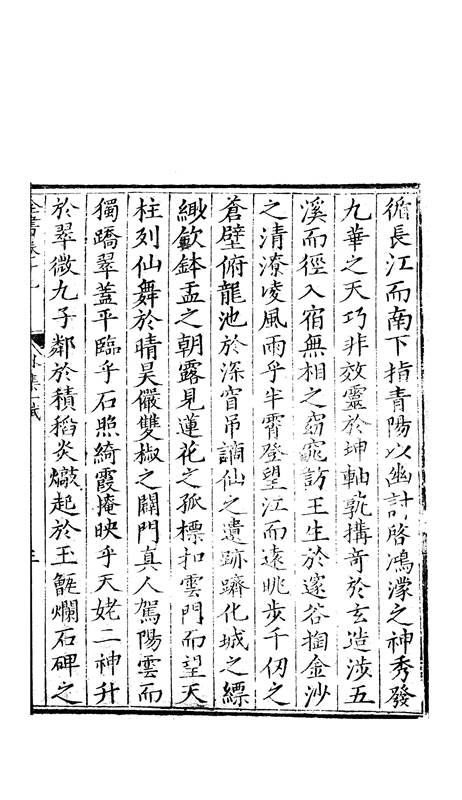 循長江而南下指青陽以幽討啓鴻濛之神秀發
九華之天巧非效靈於坤軸孰搆竒於玄造涉五
溪而徑入宿無相之窈窕訪王生於邃谷掏金沙
之清潦凌風雨乎半霄登望江而遠眺步千仞之
蒼壁俯龍池於深窅吊謫仙之遺跡躋化城之縹
緲飲鉢盂之朝露見蓮花之孤標扣雲門而望天
柱列仙舞於晴昊儼雙椒之闢門真人駕陽雲而
獨蹻翠蓋平臨乎石照綺霞掩映乎天姥二神升
於翠微九子鄰於積稻炎熾起於玉甑爛石碑之
全書卷十九 外集一 賦 三